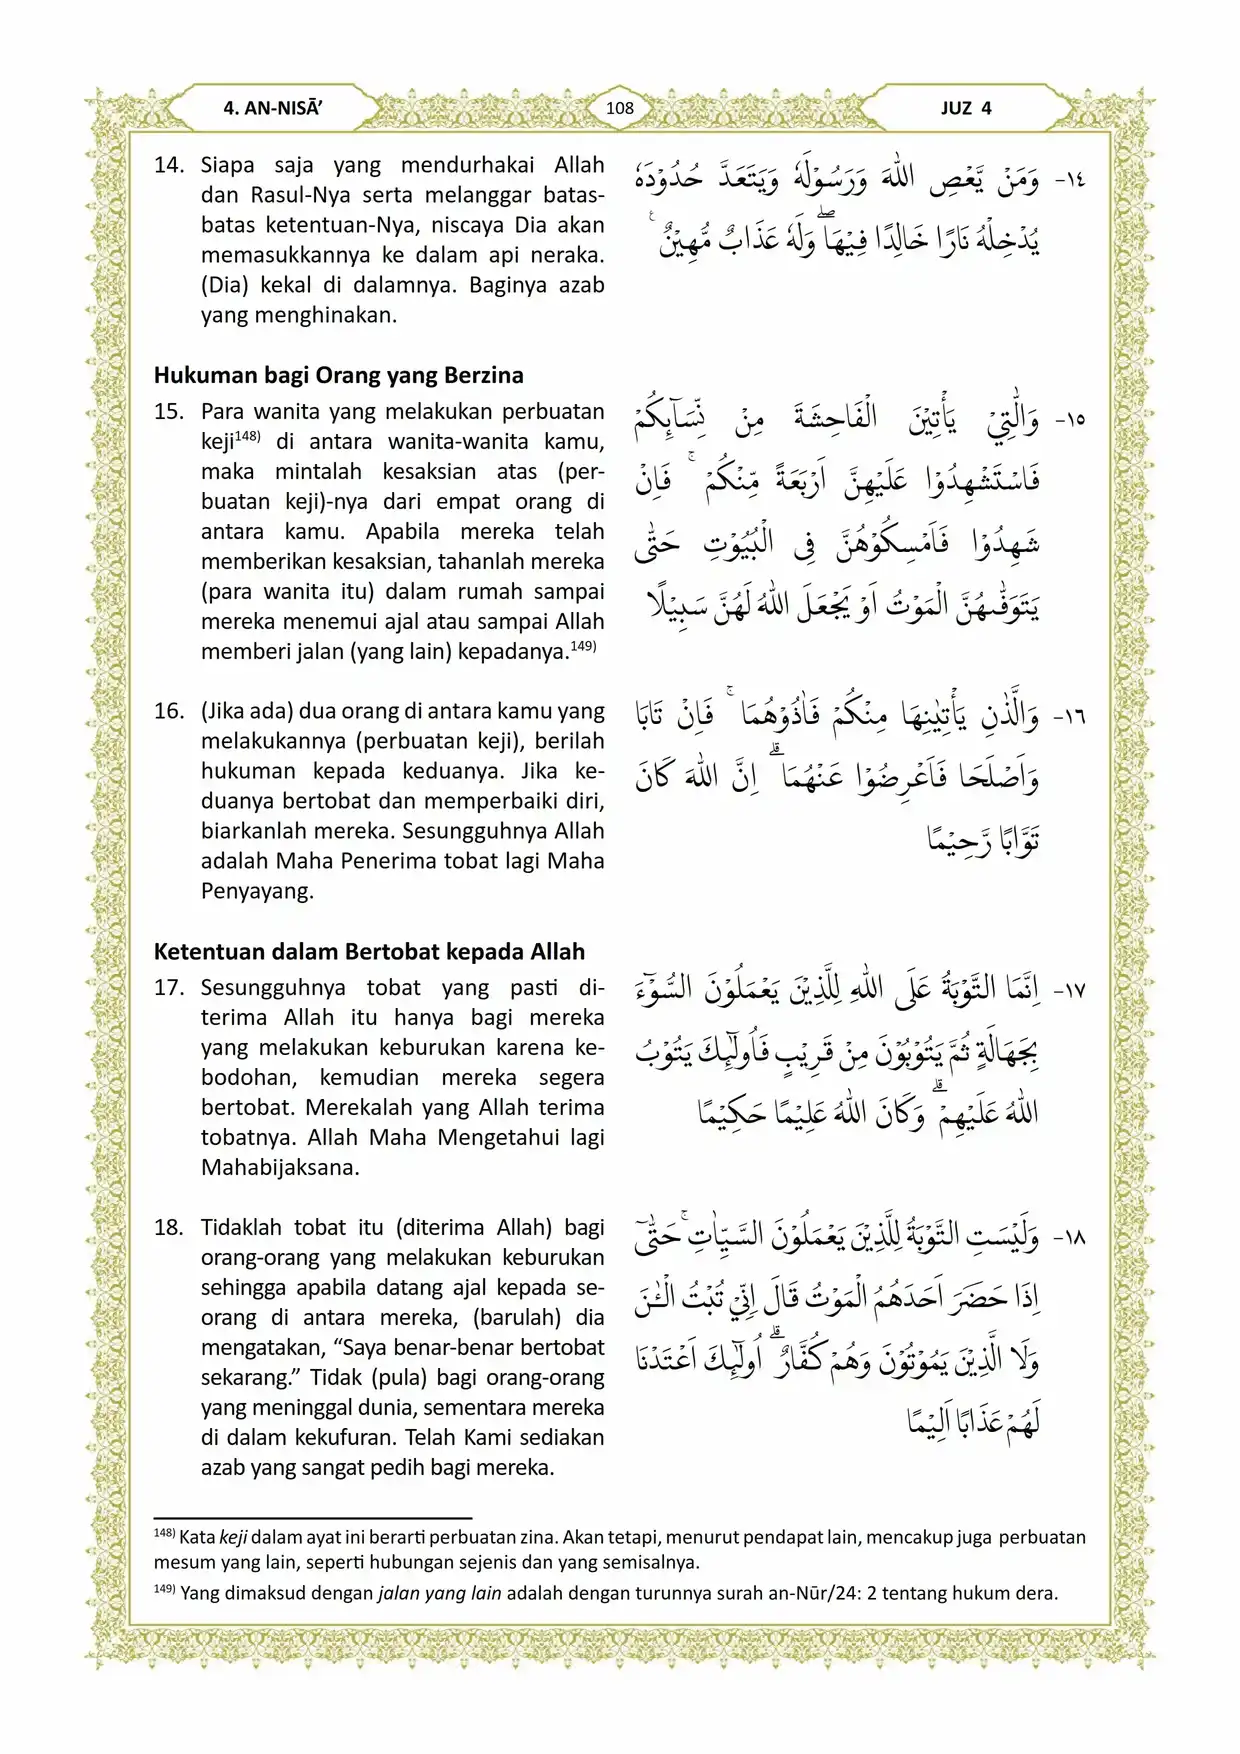 4. AN-NISĀ’
108
JUZ 4
14. Siapa saja yang mendurhakai Allah
dan Rasul-Nya serta melanggar batas-
batas ketentuan-Nya, niscaya Dia akan
memasukkannya ke dalam api neraka.
(Dia) kekal di dalamnya. Baginya azab
yang menghinakan.
١٤- وَمَنْ يَّعْصِ اللّٰهَ وَرَسُوْلَهٗ وَيَتَعَدَّ حُدُوْدَهٗ
يُدْخِلْهُ نَارًا خَالِدًا فِيْهَاۖ وَلَهٗ عَذَابٌ مُّهِيْنٌ ࣖ
Hukuman bagi Orang yang Berzina
15. Para wanita yang melakukan perbuatan
keji¹⁴⁸⁾ di antara wanita-wanita kamu,
maka mintalah kesaksian atas (per-
buatan keji)-nya dari empat orang di
antara kamu. Apabila mereka telah
memberikan kesaksian, tahanlah mereka
(para wanita itu) dalam rumah sampai
mereka menemui ajal atau sampai Allah
memberi jalan (yang lain) kepadanya.¹⁴⁹⁾
١٥- وَالّٰتِيْ يَأْتِيْنَ الْفَاحِشَةَ مِنْ نِّسَاۤىِٕكُمْ
فَاسْتَشْهِدُوْا عَلَيْهِنَّ اَرْبَعَةً مِّنْكُمْ ۚ فَاِنْ
شَهِدُوْا فَاَمْسِكُوْهُنَّ فِى الْبُيُوْتِ حَتّٰى
يَتَوَفّٰىهُنَّ الْمَوْتُ اَوْ يَجْعَلَ اللّٰهُ لَهُنَّ سَبِيْلًا
16. (Jika ada) dua orang di antara kamu yang
melakukannya (perbuatan keji), berilah
hukuman kepada keduanya. Jika ke-
duanya bertobat dan memperbaiki diri,
biarkanlah mereka. Sesungguhnya Allah
adalah Maha Penerima tobat lagi Maha
Penyayang.
١٦- وَالَّذٰنِ يَأْتِيٰنِهَا مِنْكُمْ فَاٰذُوْهُمَا ۚ فَاِنْ تَابَا
وَاَصْلَحَا فَاَعْرِضُوْا عَنْهُمَا ۗ اِنَّ اللّٰهَ كَانَ
تَوَّابًا رَّحِيْمًا
Ketentuan dalam Bertobat kepada Allah
17. Sesungguhnya tobat yang pasti di-
terima Allah itu hanya bagi mereka
yang melakukan keburukan karena ke-
bodohan, kemudian mereka segera
bertobat. Merekalah yang Allah terima
tobatnya. Allah Maha Mengetahui lagi
Mahabijaksana.
١٧- اِنَّمَا التَّوْبَةُ عَلَى اللّٰهِ لِلَّذِيْنَ يَعْمَلُوْنَ السُّوْۤءَ
بِجَهَالَةٍ ثُمَّ يَتُوْبُوْنَ مِنْ قَرِيْبٍ فَاُولٰۤىِٕكَ يَتُوْبُ
اللّٰهُ عَلَيْهِمْ ۗ وَكَانَ اللّٰهُ عَلِيْمًا حَكِيْمًا
18. Tidaklah tobat itu (diterima Allah) bagi
orang-orang yang melakukan keburukan
sehingga apabila datang ajal kepada se-
orang di antara mereka, (barulah) dia
mengatakan, “Saya benar-benar bertobat
sekarang.” Tidak (pula) bagi orang-orang
yang meninggal dunia, sementara mereka
di dalam kekufuran. Telah Kami sediakan
azab yang sangat pedih bagi mereka.
١٨- وَلَيْسَتِ التَّوْبَةُ لِلَّذِيْنَ يَعْمَلُوْنَ السَّيِّاٰتِۚ حَتّٰىٓ
اِذَا حَضَرَ اَحَدَهُمُ الْمَوْتُ قَالَ اِنِّيْ تُبْتُ الْـٰٔنَ
وَلَا الَّذِيْنَ يَمُوْتُوْنَ وَهُمْ كُفَّارٌ ۗ اُولٰۤىِٕكَ اَعْتَدْنَا
لَهُمْ عَذَابًا اَلِيْمًا
¹⁴⁸⁾ Kata keji dalam ayat ini berarti perbuatan zina. Akan tetapi, menurut pendapat lain, mencakup juga perbuatan
mesum yang lain, seperti hubungan sejenis dan yang semisalnya.
¹⁴⁹⁾ Yang dimaksud dengan jalan yang lain adalah dengan turunnya surah an-Nūr/24: 2 tentang hukum dera.